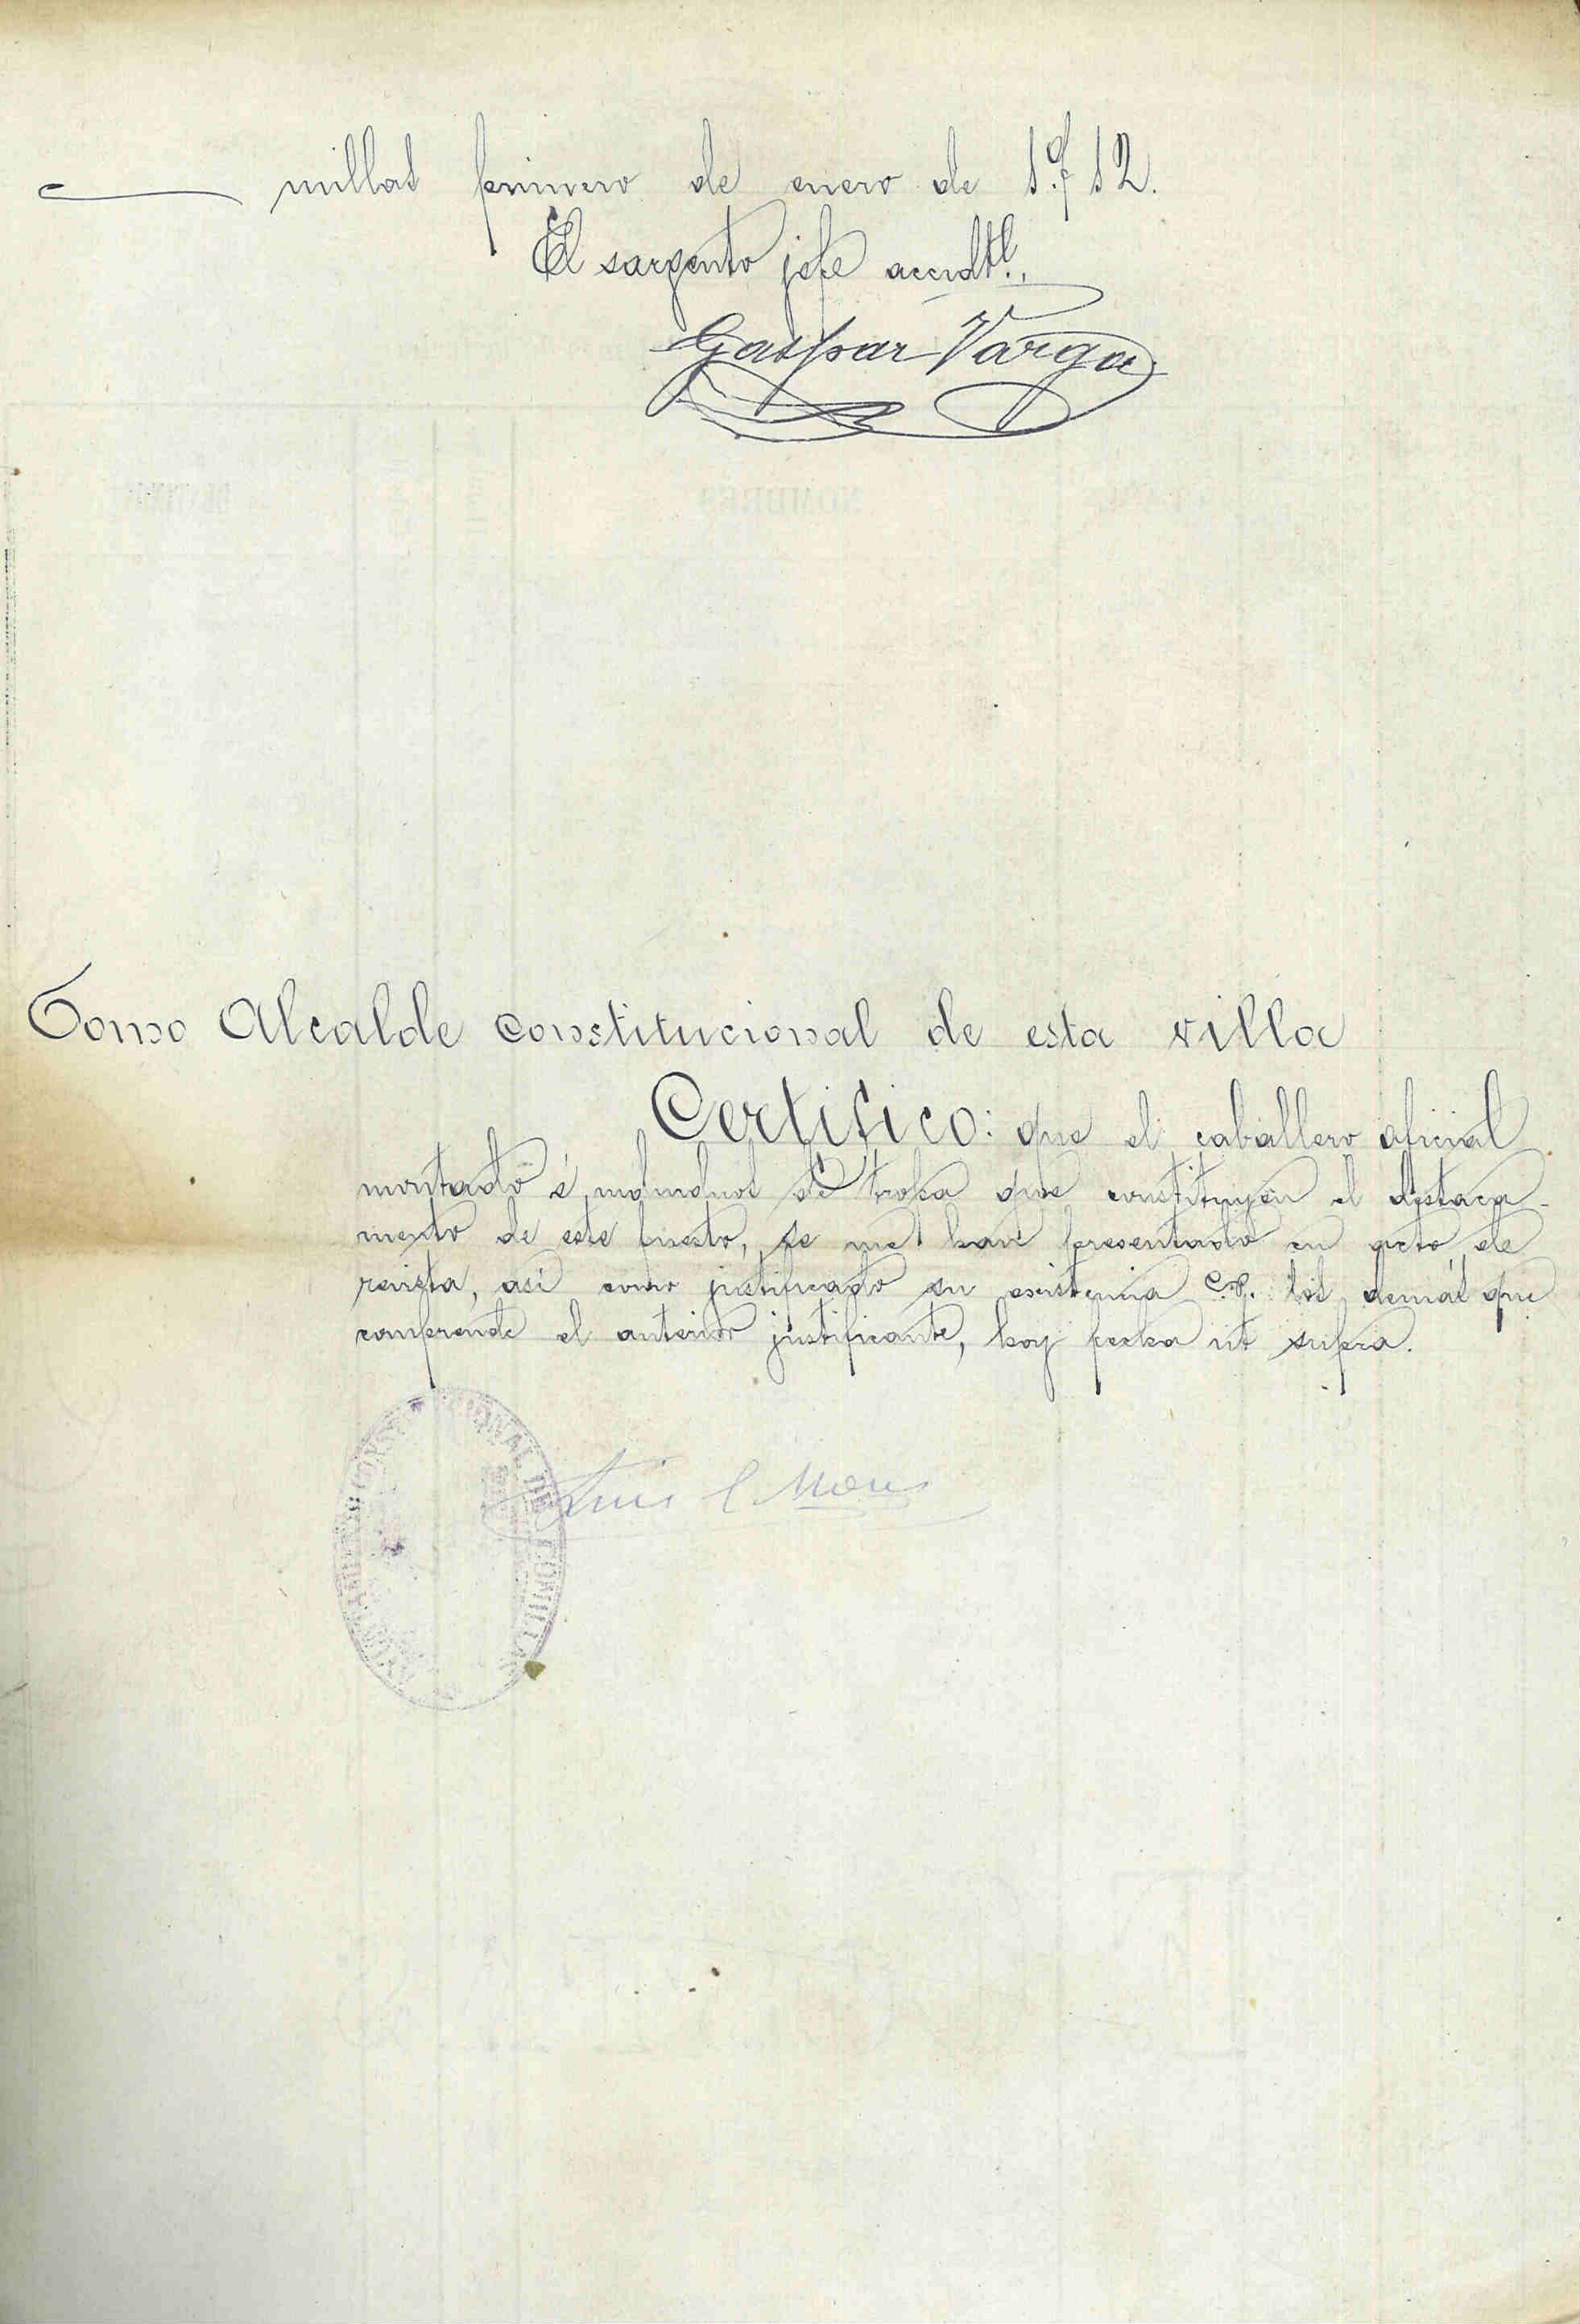 millas primero de enero de 1912.
El sargento jefe accidtl.,
Gaspar Varga
Como Alcalde constitucional de esta villa
Certifico: que el caballero oficial
montado é individuos de tropa que constituyen el destaca-
mento de este puesto, se me han presentado en acto de
revista, así como justificado su existencia los demás que
comprende el anterior justificante, hoy fecha ut supra.
CIONAL DE COMILLAS
Luis